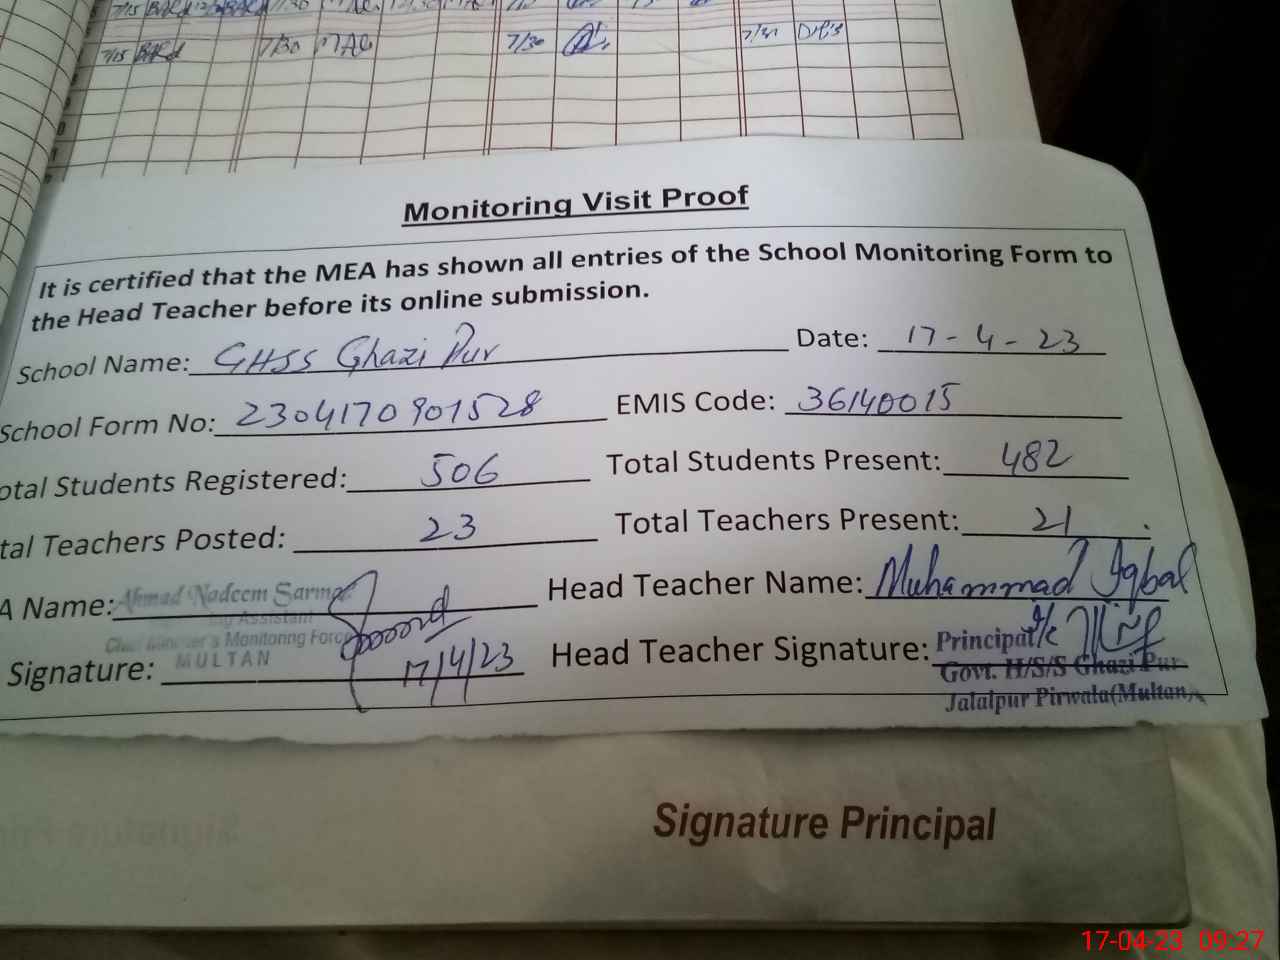 7/15 7/30 MAQ 7/30
7/15 7/30 MAQ 7/30 7/30
Monitoring Visit Proof
It is certified that the MEA has shown all entries of the School Monitoring Form to
the Head Teacher before its online submission.
School Name: GHSS Ghazi Pur Date: 17-4-23
School Form No: 2304170901528 EMIS Code: 36140015
otal Students Registered: 506 Total Students Present: 482
tal Teachers Posted: 23 Total Teachers Present: 21
A Name: Ahmad Nadeem Sarmad Head Teacher Name: Muhammad Iqbal
ing Assistant
Chief Minister's Monitoring Force
Signature: MULTAN 17/4/23 Head Teacher Signature: Principal
Govt. H/S/S Ghazi Pur
Jalalpur Pirwala(Multan)
Signature Principal
17-04-23 09:27